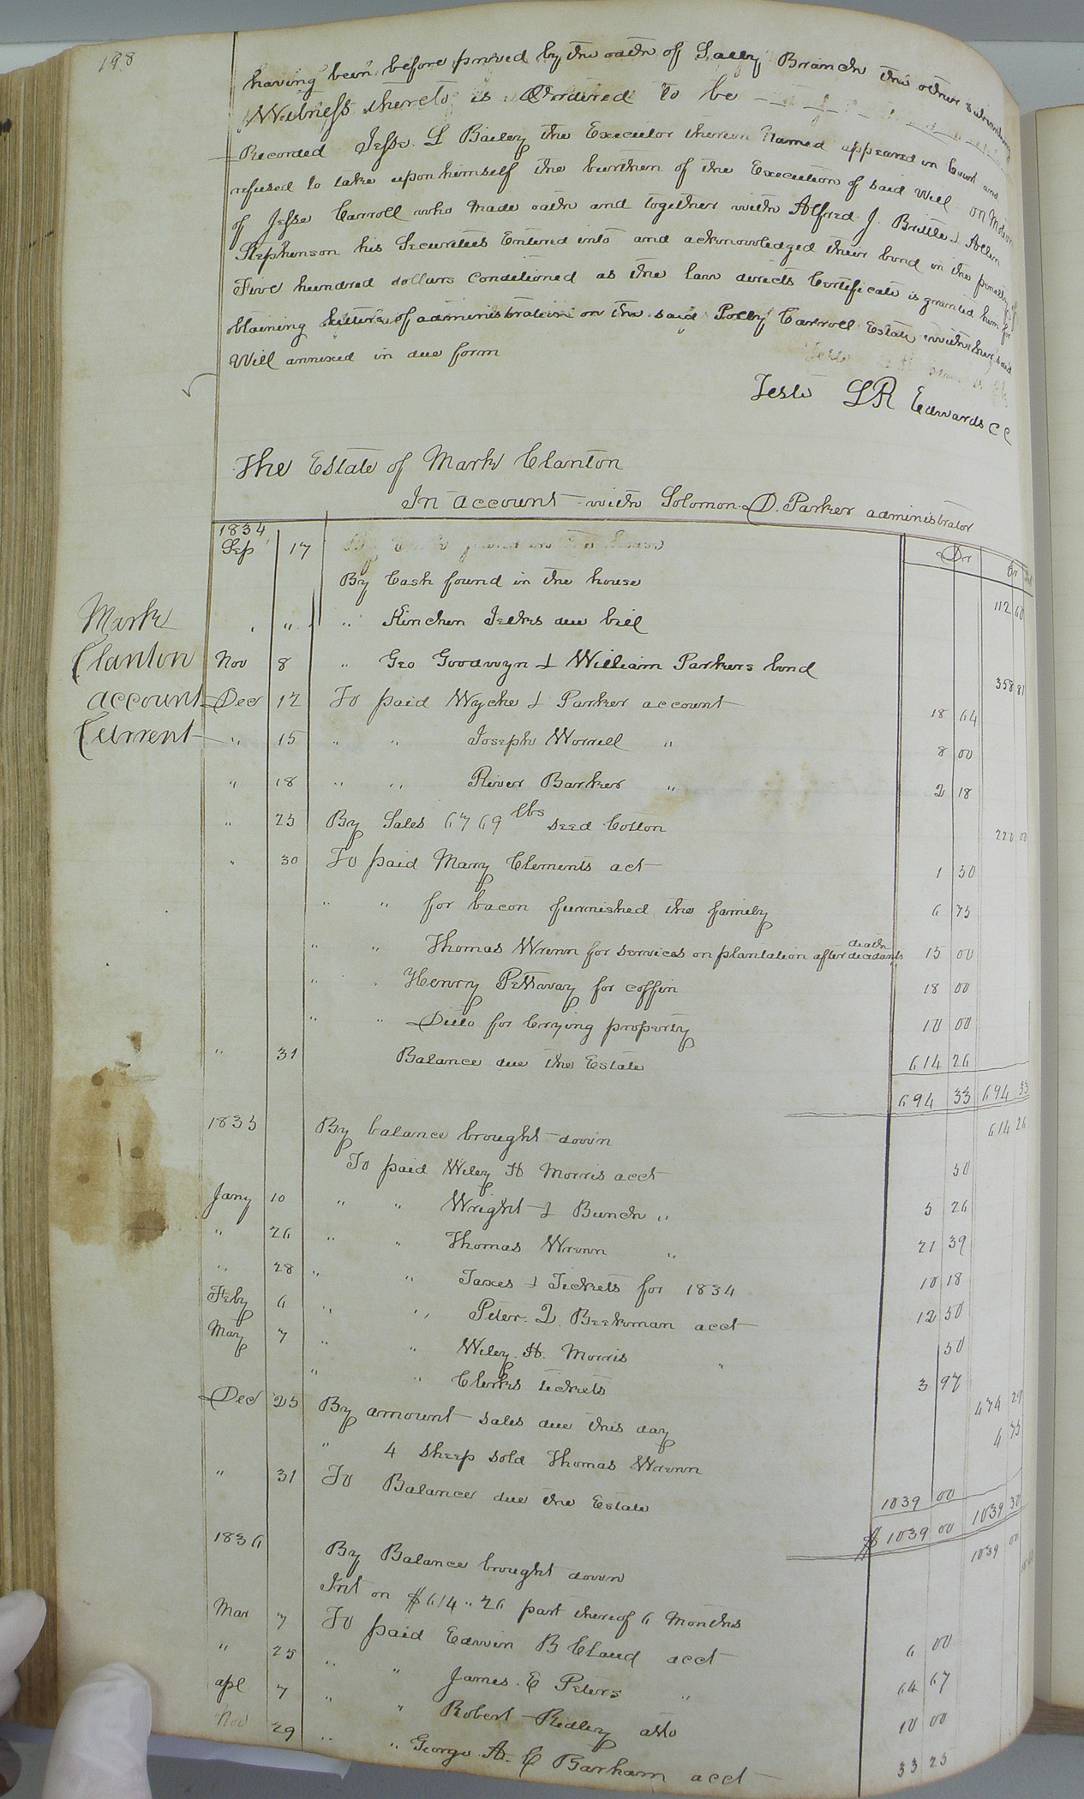 198
having been before proved by the oath of Sally Branch the other subscribing
Witness thereto is Ordered to be
Recorded Jesse L Bailey the Executor therein Named appeared in Court and
refused to take upon himself the burthen of the Execution of said Will on Motion
of Jesse Carroll who Made oath and together with Alfred J. Brittle & Allen
Stephenson his Securities Entered into and acknowledged their bond in the penalty of
Five hundred dollars Conditioned as the law directs Certificate is granted him for
obtaining letters of administration on the said Polly Carroll Estate with her said
Will annexed in due form
Teste L R Edwards C C
The Estate of Mark Clanton
In account with Solomon D. Parker administrator
Mark Clanton account Current
Dr Cr
1834
Sep 17 By Cash found in the house 112 60
" " " Kinchen Jelks due bill
Nov 8 " Geo Goodwyn & William Parkers bond 358 81
Dec 12 To paid Wyche & Parker account 18 64
" 15 " " Joseph Worrell " 8 00
" 18 " " River Barker " 2 18
" 25 By Sales 6769 lbs seed Cotton 220 00
" 30 To paid Mary Clements act 1 50
" " for bacon furnished the family 6 75
" " Thomas Wrenn for services on plantation after decedants death 15 00
" " Henry Pettway for coffin 18 00
" " Ditto for Crying property 10 00
" 31 Balance due the Estate 614 26
694 33 694 33
1835 By balance brought down 614 26
To paid Wiley H Morris acct 50
Jany 10 " " Wright & Bunch " 5 26
" 26 " " Thomas Wrenn " 21 39
" 28 " " Taxes & Tickets for 1834 10 18
Feby 6 " " Peter Q Beekman acct 12 50
May 7 " " Wiley H. Morris " 50
" " Clerks tickets 3 97
Dec 25 By amount sales due this day 474
" 4 sheep sold Thomas Wrenn 4 75
" 31 To Balance due the Estate 1039 00
$ 1039 00 1039 30
1836 By Balance brought down 1039 00
Int on $614..26 part thereof 6 Months
Mar 7 To paid Edwin B Claud acct 6 00
" 25 " " James E Peters " 64 67
apl 7 " " Robert Ridley atto 10 00
Nov 29 " " George A. C Barham acct 33 25